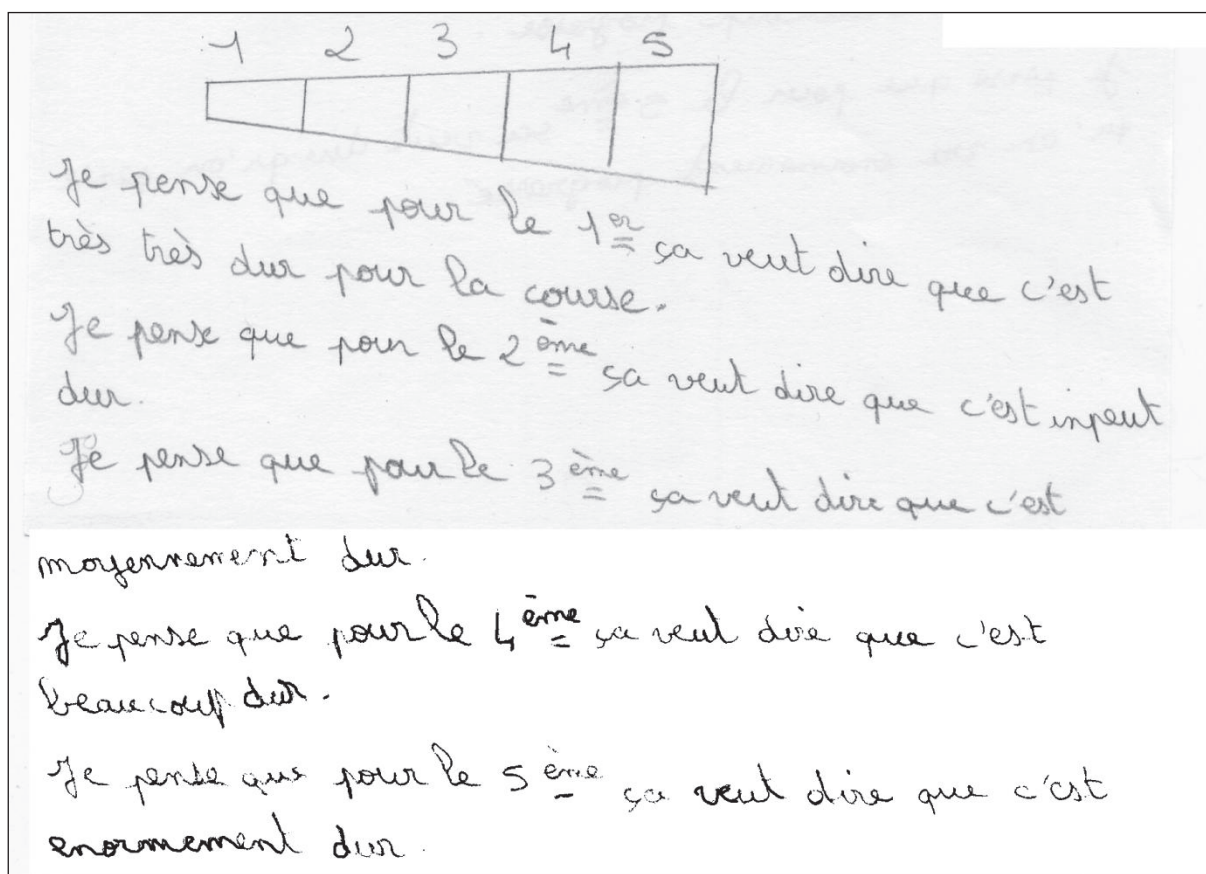 1 2 3 4 5
Je pense que pour le 1er ça veut dire que c'est
très très dur pour la course.
Je pense que pour le 2ème ça veut dire que c'est inpeut
dur.
Je pense que pour le 3ème ça veut dire que c'est
moyennement dur.
Je pense que pour le 4ème ça veut dire que c'est
beaucoup dur.
Je pense que pour le 5ème ça veut dire que c'est
enormement dur.